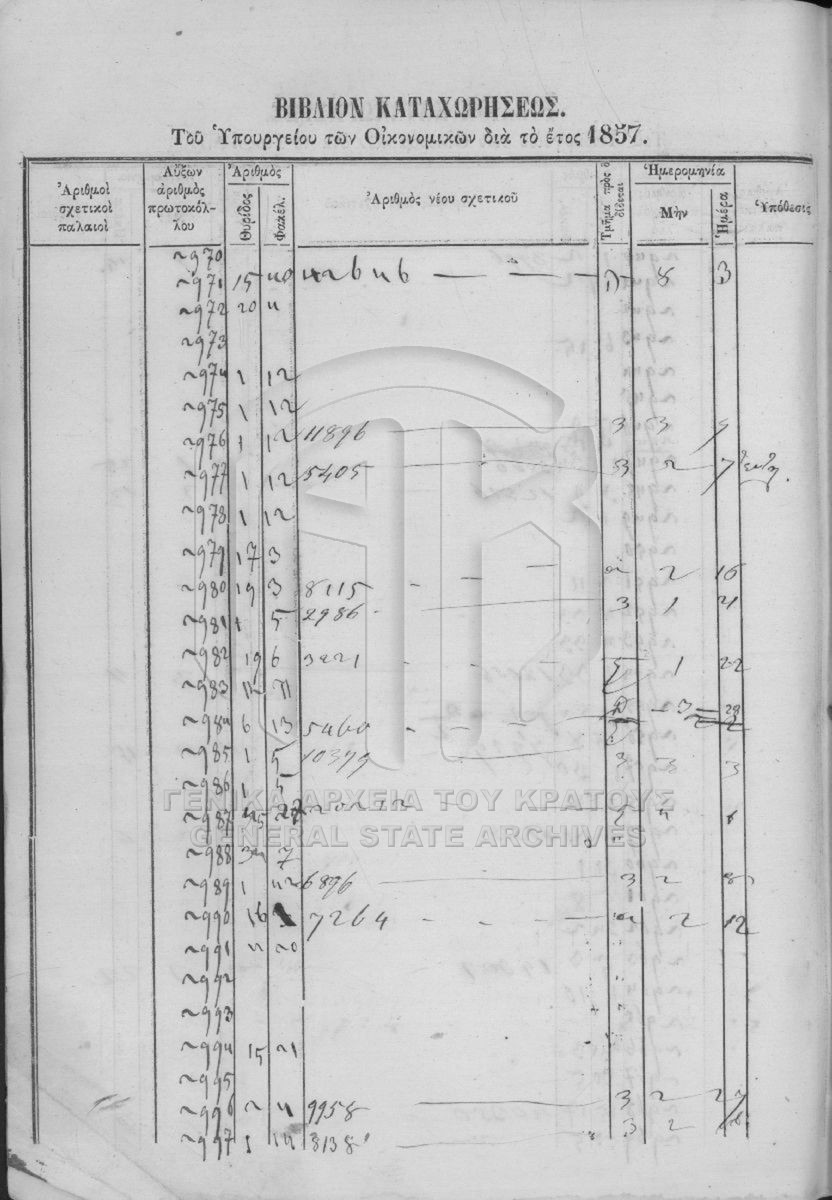 ΒΙΒΛΙΟΝ ΚΑΤΑΧΩΡΗΣΕΩΣ.
Τοῦ Ὑπουργείου τῶν Οἰκονομικῶν διὰ τὸ ἔτος 1857.
Ἀριθμοὶ σχετικοὶ παλαιοὶ
Αὔξων ἀριθμὸς πρωτοκόλλου
Ἀριθμὸς
Θυρίδος
Φακέλ.
Ἀριθμὸς νέου σχετικοῦ
Τμῆμα πρὸς ὃ δίδεται
Ἡμερομηνία
Μὴν
Ἡμέρα
Ὑπόθεσις
2970
2971 15
2972 20 4
2973
2974 1 12
2975 1 12
2976 1 12 11896 3 3 9
2977 1 12 5405 3 2 7
2978 1 12
2979 17 3
2980 19 3 8115 2 16
2981 1 5 2986 3 1 21
2982 19 6 3221 1 22
2983
2984 6 13 5460
2985 1 5 10379 3 3 3
2986 1 5
2987
2988 34 7
2989 1 42 6896 3 2 8
2990 16 7264 2 12
2991 4 20
2992
2993
2994 15 21
2995
2996 2 4 9958 3 2 27
2997 1 14 8138 3 2
ΓΕΝΙΚΑ ΑΡΧΕΙΑ ΤΟΥ ΚΡΑΤΟΥΣ
GENERAL STATE ARCHIVES